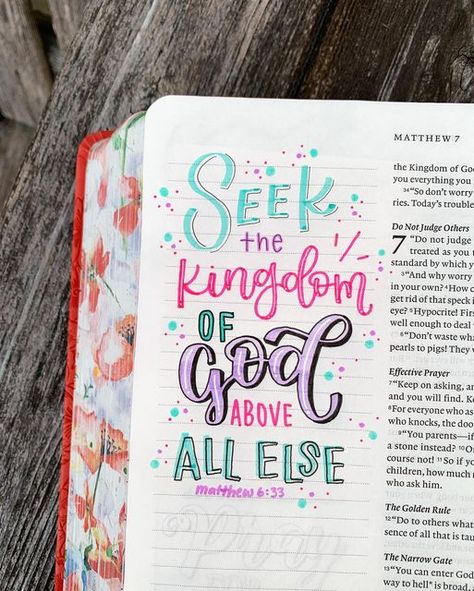 SEEK
the
kingdom
OF
God
ABOVE
ALL ELSE
matthew 6:33
Pray
MATTHEW 7
the Kingdom of God
you everything you
34 "So don't worry
ries. Today's trouble
Do Not Judge Others
7 "Do not judge
treated as you t
standard by which y
3 "And why worry
in your own? 4 How c
get rid of that speck i
eye? 5 Hypocrite! First
well enough to deal
6 "Don't waste wha
pearls to pigs! They w
Effective Prayer
7 "Keep on asking, an
and you will find. K
8 For everyone who as
who knocks, the doo
9 "You parents—if
a stone instead? 10 O
course not! 11 So if yo
children, how much
who ask him.
The Golden Rule
12 "Do to others what
sense of all that is tau
The Narrow Gate
13 "You can enter God
way to hell* is broad,